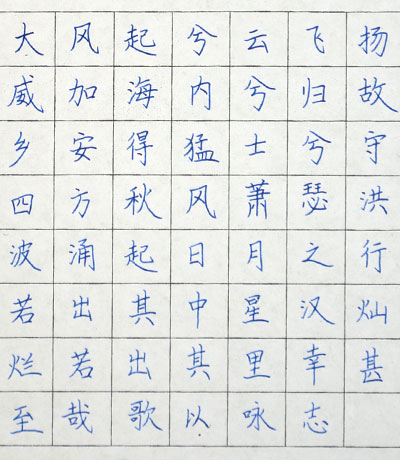 大风起兮云飞扬
威加海内兮归故
乡安得猛士兮守
四方秋风萧瑟洪
波涌起日月之行
若出其中星汉灿
烂若出其里幸甚
至哉歌以咏志